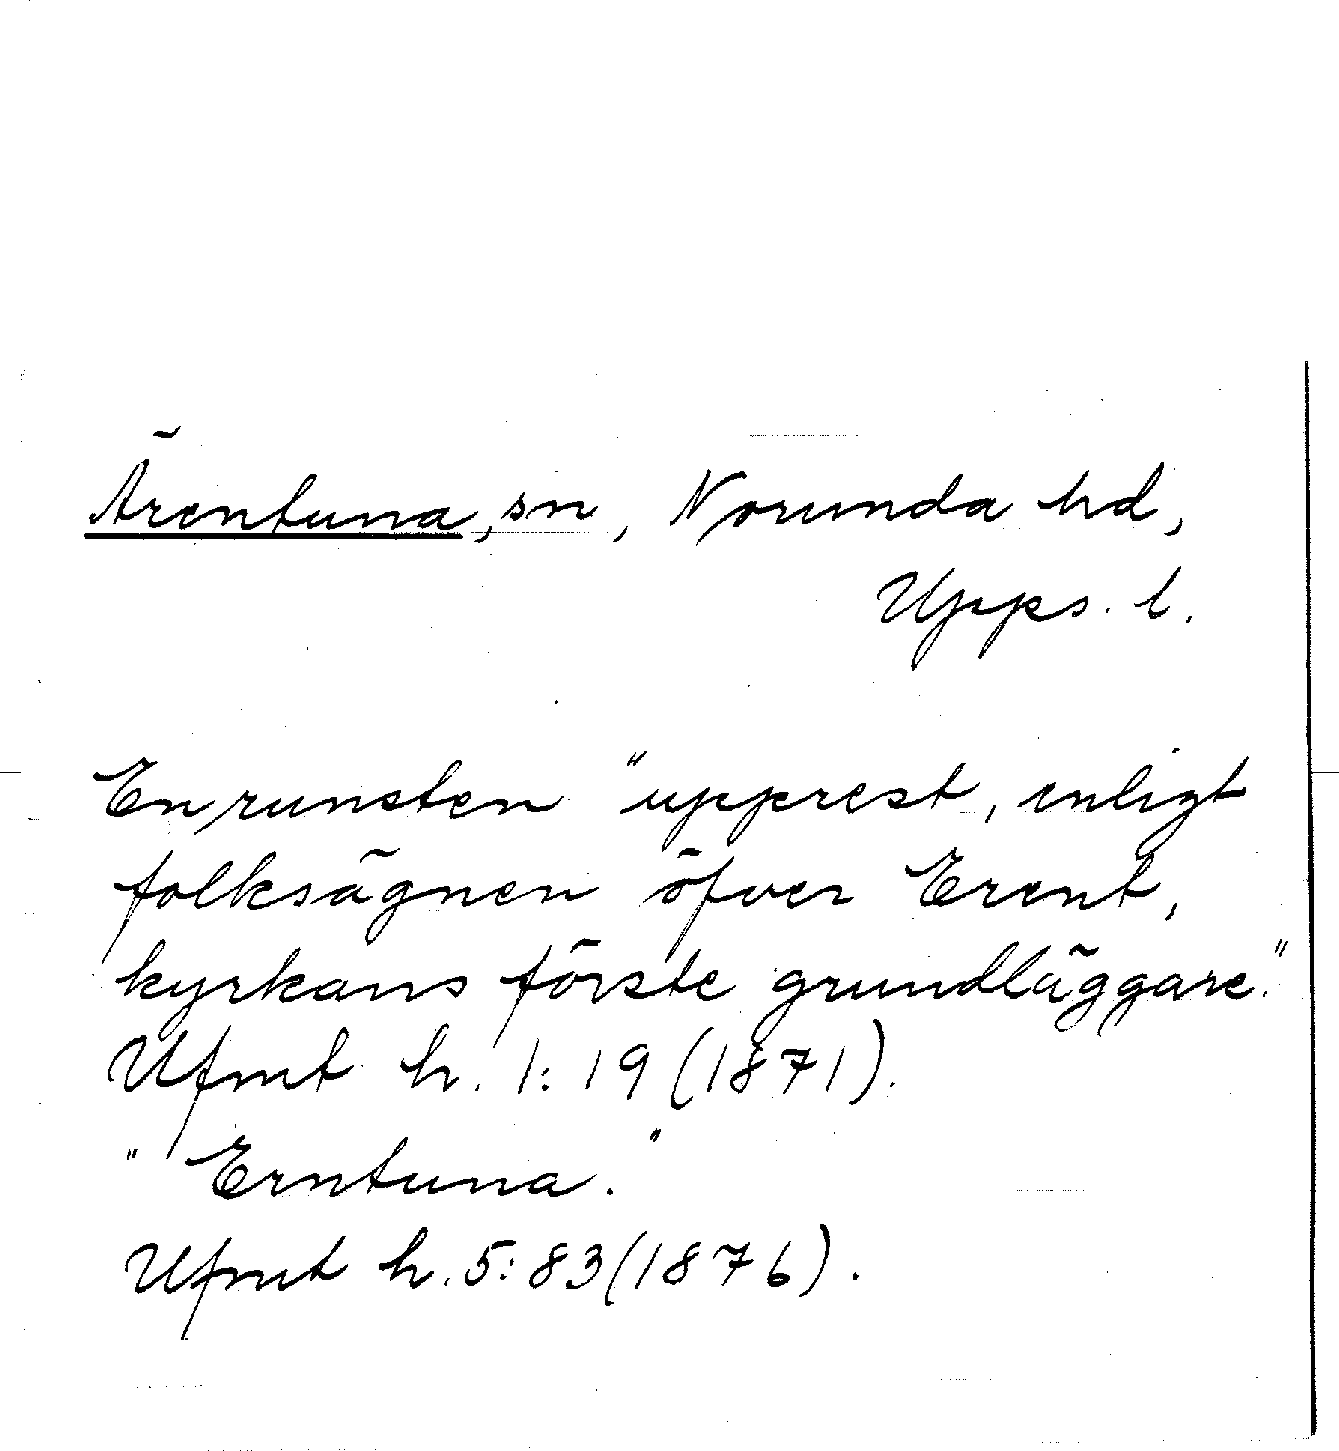 Ärentuna, sn, Norunda hd,
Upps. l.
En runsten "upprest, enligt
folksägnen öfver Erent,
kyrkans förste grundläggare."
Ufmt h. 1:19 (1871).
"Erntuna."
Ufmt h. 5:83 (1876).